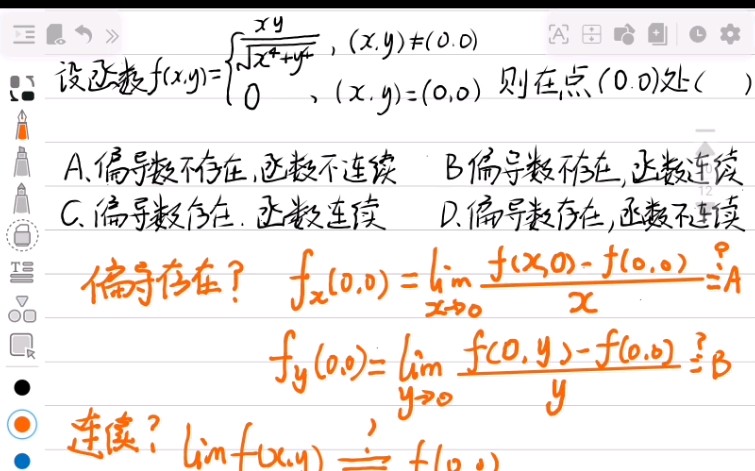 设函数f(x,y)={ xy/√(x⁴+y⁴) , (x,y)≠(0.0)
0 , (x,y)=(0,0) 则在点(0.0)处( )
A、偏导数不存在,函数不连续 B偏导数不存在,函数连续
C、偏导数存在.函数连续 D、偏导数存在,函数不连续
偏导存在? fₓ(0,0)=lim x→0 (f(x,0)-f(0,0))/x ≟A
f_y(0,0)=lim y→0 (f(0,y)-f(0,0))/y ≟B
连续? lim f(x,y) ≟ f(0,0)